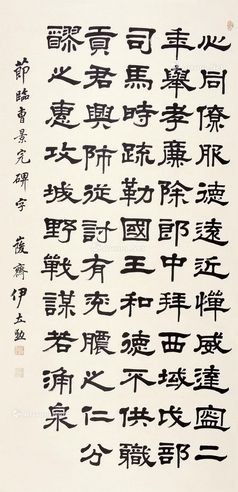 心同僚服德遠近憚威建寧二
年舉孝廉除郎中拜西域戊部
司馬時疏勒國王和德不供職
貢君興師征討有兗膿之仁分
醪之惠攻城野戰謀若涌泉
節臨曹景完碑字
齋伊立勳